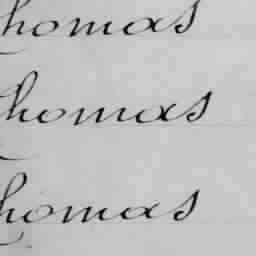 homas
homas
homas